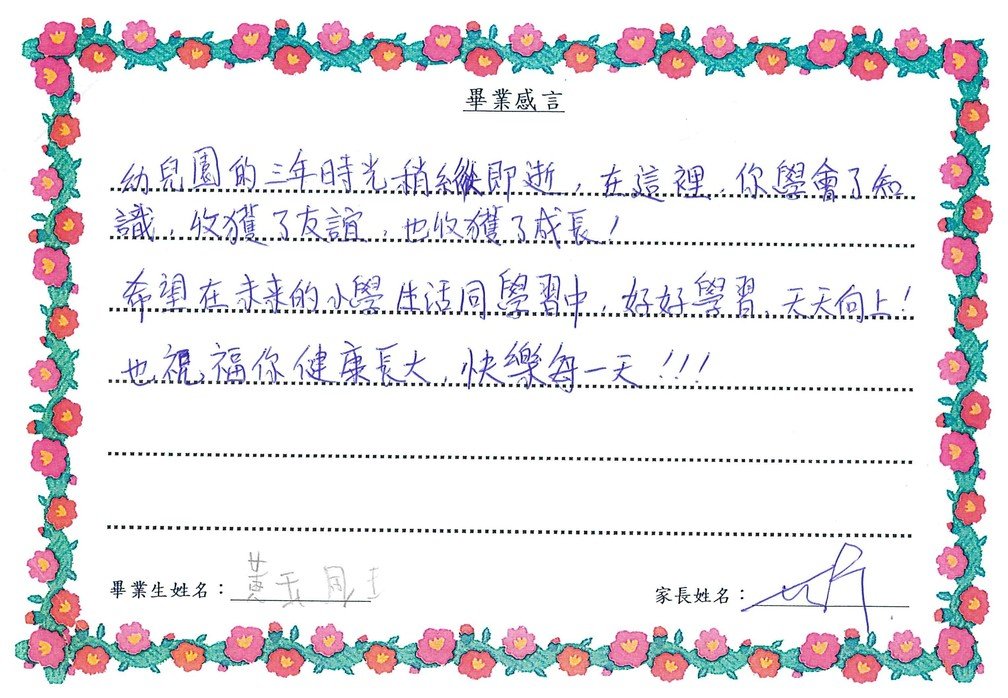 畢業感言
幼兒園的三年時光稍縱即逝，在這裡，你學會了知
識，收獲了友誼，也收獲了成長！
希望在未來的小學生活同學習中，好好學習，天天向上！
也祝福你健康長大，快樂每一天！！！
畢業生姓名：黃
家長姓名：